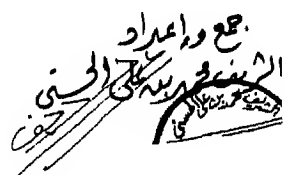 جمع وإعداد
الشريف محمد بن علي الحسني